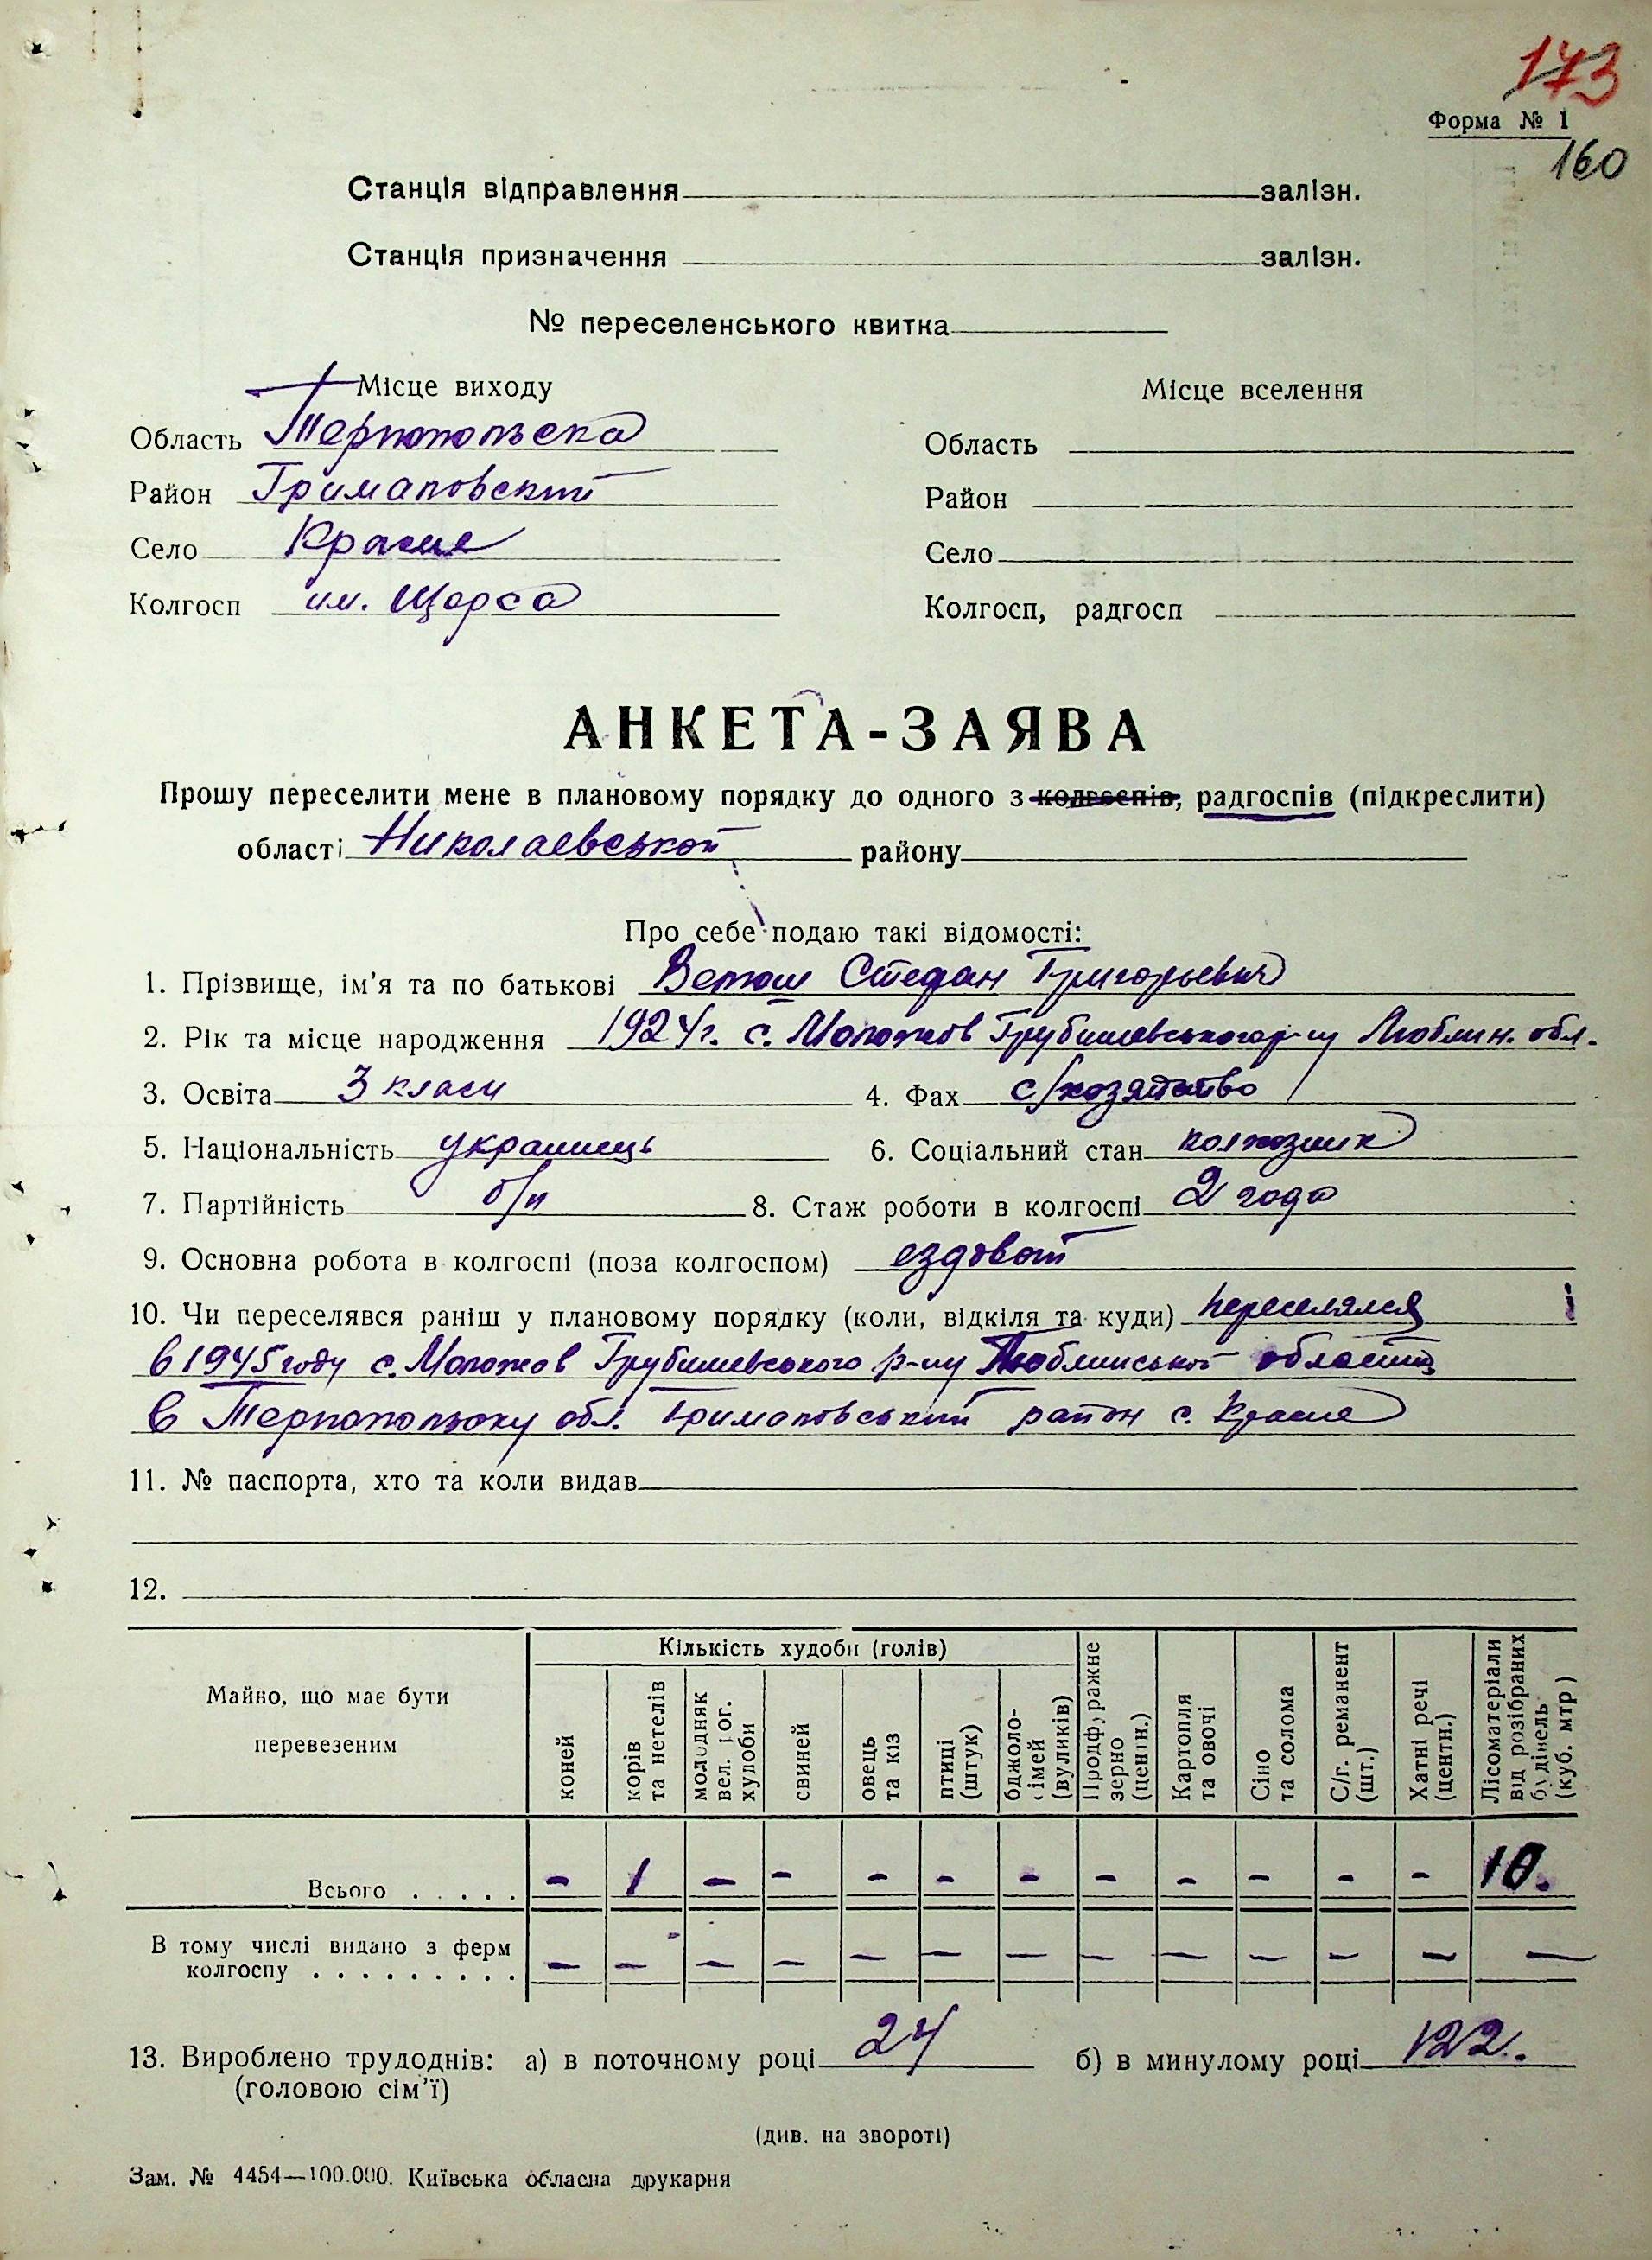 173
Форма № 1
160
Станція відправлення залізн.
Станція призначення залізн.
№ переселенського квитка
Місце виходу Місце вселення
Область Тернопольска Область
Район Грималовский Район
Село Красне Село
Колгосп им. Щорса Колгосп, радгосп
АНКЕТА-ЗАЯВА
Прошу переселити мене в плановому порядку до одного з колгоспів, радгоспів (підкреслити)
області Николаевської району
Про себе подаю такі відомості:
1. Прізвище, ім'я та по батькові Стефан Григорьевич
2. Рік та місце народження 1924 г. с. Моложов Грубишевського р-ну Люблин. обл.
3. Освіта 3 класи 4. Фах с/хозяйство
5. Національність українець 6. Соціальний стан колхозник
7. Партійність б/п 8. Стаж роботи в колгоспі 2 года
9. Основна робота в колгоспі (поза колгоспом) ездовой
10. Чи переселявся раніш у плановому порядку (коли, відкіля та куди) переселялся
в 1945 году с. Моложов Грубишевського р-ну Люблинської области
в Тернопольску обл. Грималовський район с. Красне
11. № паспорта, хто та коли видав
12.
Майно, що має бути перевезеним
Кількість худоби (голів)
коней
корів та нетелів
молодняк вел. рог. худоби
свиней
овець та кіз
птиці (штук)
бджоло-сімей (вуликів)
Продфуражне зерно (центн.)
Картопля та овочі
Сіно та солома
С/г. реманент (шт.)
Хатні речі (центн.)
Лісоматеріали від розібраних будінель (куб. мтр)
Всього . . . . . - 1 - - - - - - - - - - 10.
В тому числі видано з ферм
колгоспу . . . . . . . . . - - - - - - - - - - - - -
13. Вироблено трудоднів: а) в поточному році 24 б) в минулому році 122.
(головою сім'ї)
(див. на звороті)
Зам. № 4454—100.000. Київська обласна друкарня